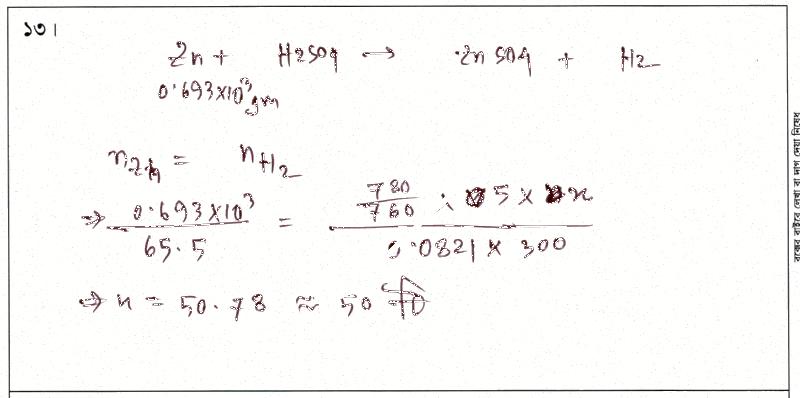 ১৩।
Zn + H2SO4 → ZnSO4 + H2
0.693×10³ gm
nZn = nH2
⇒ 0.693×10³ / 65.5 = 780/760 × 5 × n / 0.0821 × 300
⇒ n = 50.78 ≈ 50 টি
বক্সের বাইরে লেখা বা দাগ দেয়া নিষেধ